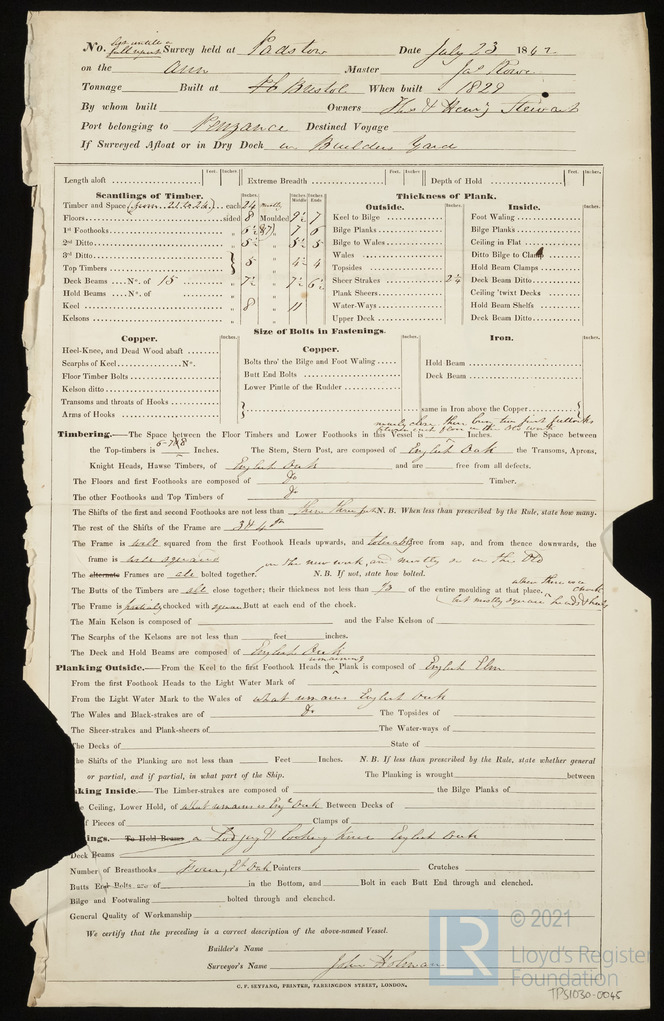 No. Survey held at Padstow Date July 23 1847
on the Ann Master Jas Rowe
Tonnage Built at Bristol When built 1829
By whom built Owners Thos & Henry Stewart
Port belonging to Penzance Destined Voyage
If Surveyed Afloat or in Dry Dock in Builders Yard
Length aloft Feet. Inches. Extreme Breadth Feet. Inches. Depth of Hold Feet. Inches.
Scantlings of Timber.
Timber and Space each 24
Floors sided 8 Moulded 9½ 7
1st Foothooks 6½ 7 6
2nd Ditto 5½ 5½ 5
3rd Ditto
Top Timbers 5 4½ 4
Deck Beams No. of 15 7½ 7½ 6½
Hold Beams No. of
Keel 8 11
Kelsons
Thickness of Plank.
Outside.
Keel to Bilge
Bilge Planks
Bilge to Wales
Wales
Topsides
Sheer Strakes 2¼
Plank Sheers
Water-Ways
Upper Deck
Inside.
Foot Waling
Bilge Planks
Ceiling in Flat
Ditto Bilge to Clamp
Hold Beam Clamps
Deck Beam Ditto
Ceiling 'twixt Decks
Hold Beam Shelfs
Deck Beam Ditto
Size of Bolts in Fastenings.
Copper.
Heel-Knee, and Dead Wood abaft
Scarphs of Keel No.
Floor Timber Bolts
Kelson ditto
Transoms and throats of Hooks
Arms of Hooks
Copper.
Bolts thro' the Bilge and Foot Waling
Butt End Bolts
Lower Pintle of the Rudder
same in Iron above the Copper
Iron.
Hold Beam
Deck Beam
Timbering.—The Space between the Floor Timbers and Lower Foothooks in this Vessel is Inches. The Space between
the Top-timbers is 6-7&8 Inches. The Stem, Stern Post, are composed of English Oak the Transoms, Aprons,
Knight Heads, Hawse Timbers, of English Oak and are free from all defects.
The Floors and first Foothooks are composed of Do Timber.
The other Foothooks and Top Timbers of Do
The Shifts of the first and second Foothooks are not less than N.B. When less than prescribed by the Rule, state how many.
The rest of the Shifts of the Frame are
The Frame is well squared from the first Foothook Heads upwards, and tolerably free from sap, and from thence downwards, the
frame is well squared in the new work, and mostly so in the Old
The alternate Frames are all bolted together. N.B. If not, state how bolted.
The Butts of the Timbers are all close together; their thickness not less than ⅓ of the entire moulding at that place, when there is a chock
The Frame is partially chocked with square Butt at each end of the chock. but mostly square heads & heels
The Main Kelson is composed of and the False Kelson of
The Scarphs of the Kelsons are not less than feet inches.
The Deck and Hold Beams are composed of English Oak
Planking Outside.—From the Keel to the first Foothook Heads the remaining Plank is composed of English Elm
From the first Foothook Heads to the Light Water Mark of
From the Light Water Mark to the Wales of what remains English Oak
The Wales and Black-strakes are of Do The Topsides of
The Sheer-strakes and Plank-sheers of The Water-ways of
The Decks of State of
he Shifts of the Planking are not less than Feet Inches. N.B. If less than prescribed by the Rule, state whether general
or partial, and if partial, in what part of the Ship. The Planking is wrought between
king Inside.—The Limber-strakes are composed of the Bilge Planks of
e Ceiling, Lower Hold, of what remains is Engh Oak Between Decks of
f Pieces of Clamps of
ings. To Hold Beams a Lodging & hooking knee English Oak
Deck Beams
Number of Breasthooks Four, E. Oak Pointers Crutches
Butts End Bolts are of in the Bottom, and Bolt in each Butt End through and clenched.
Bilge and Footwaling bolted through and clenched.
General Quality of Workmanship
We certify that the preceding is a correct description of the above-named Vessel.
Builder's Name
Surveyor's Name John Holman
C. F. SEYFANG, PRINTER, FARRINGDON STREET, LONDON.
LR © 2021
Lloyd's Register
Foundation
TPS1030-0045